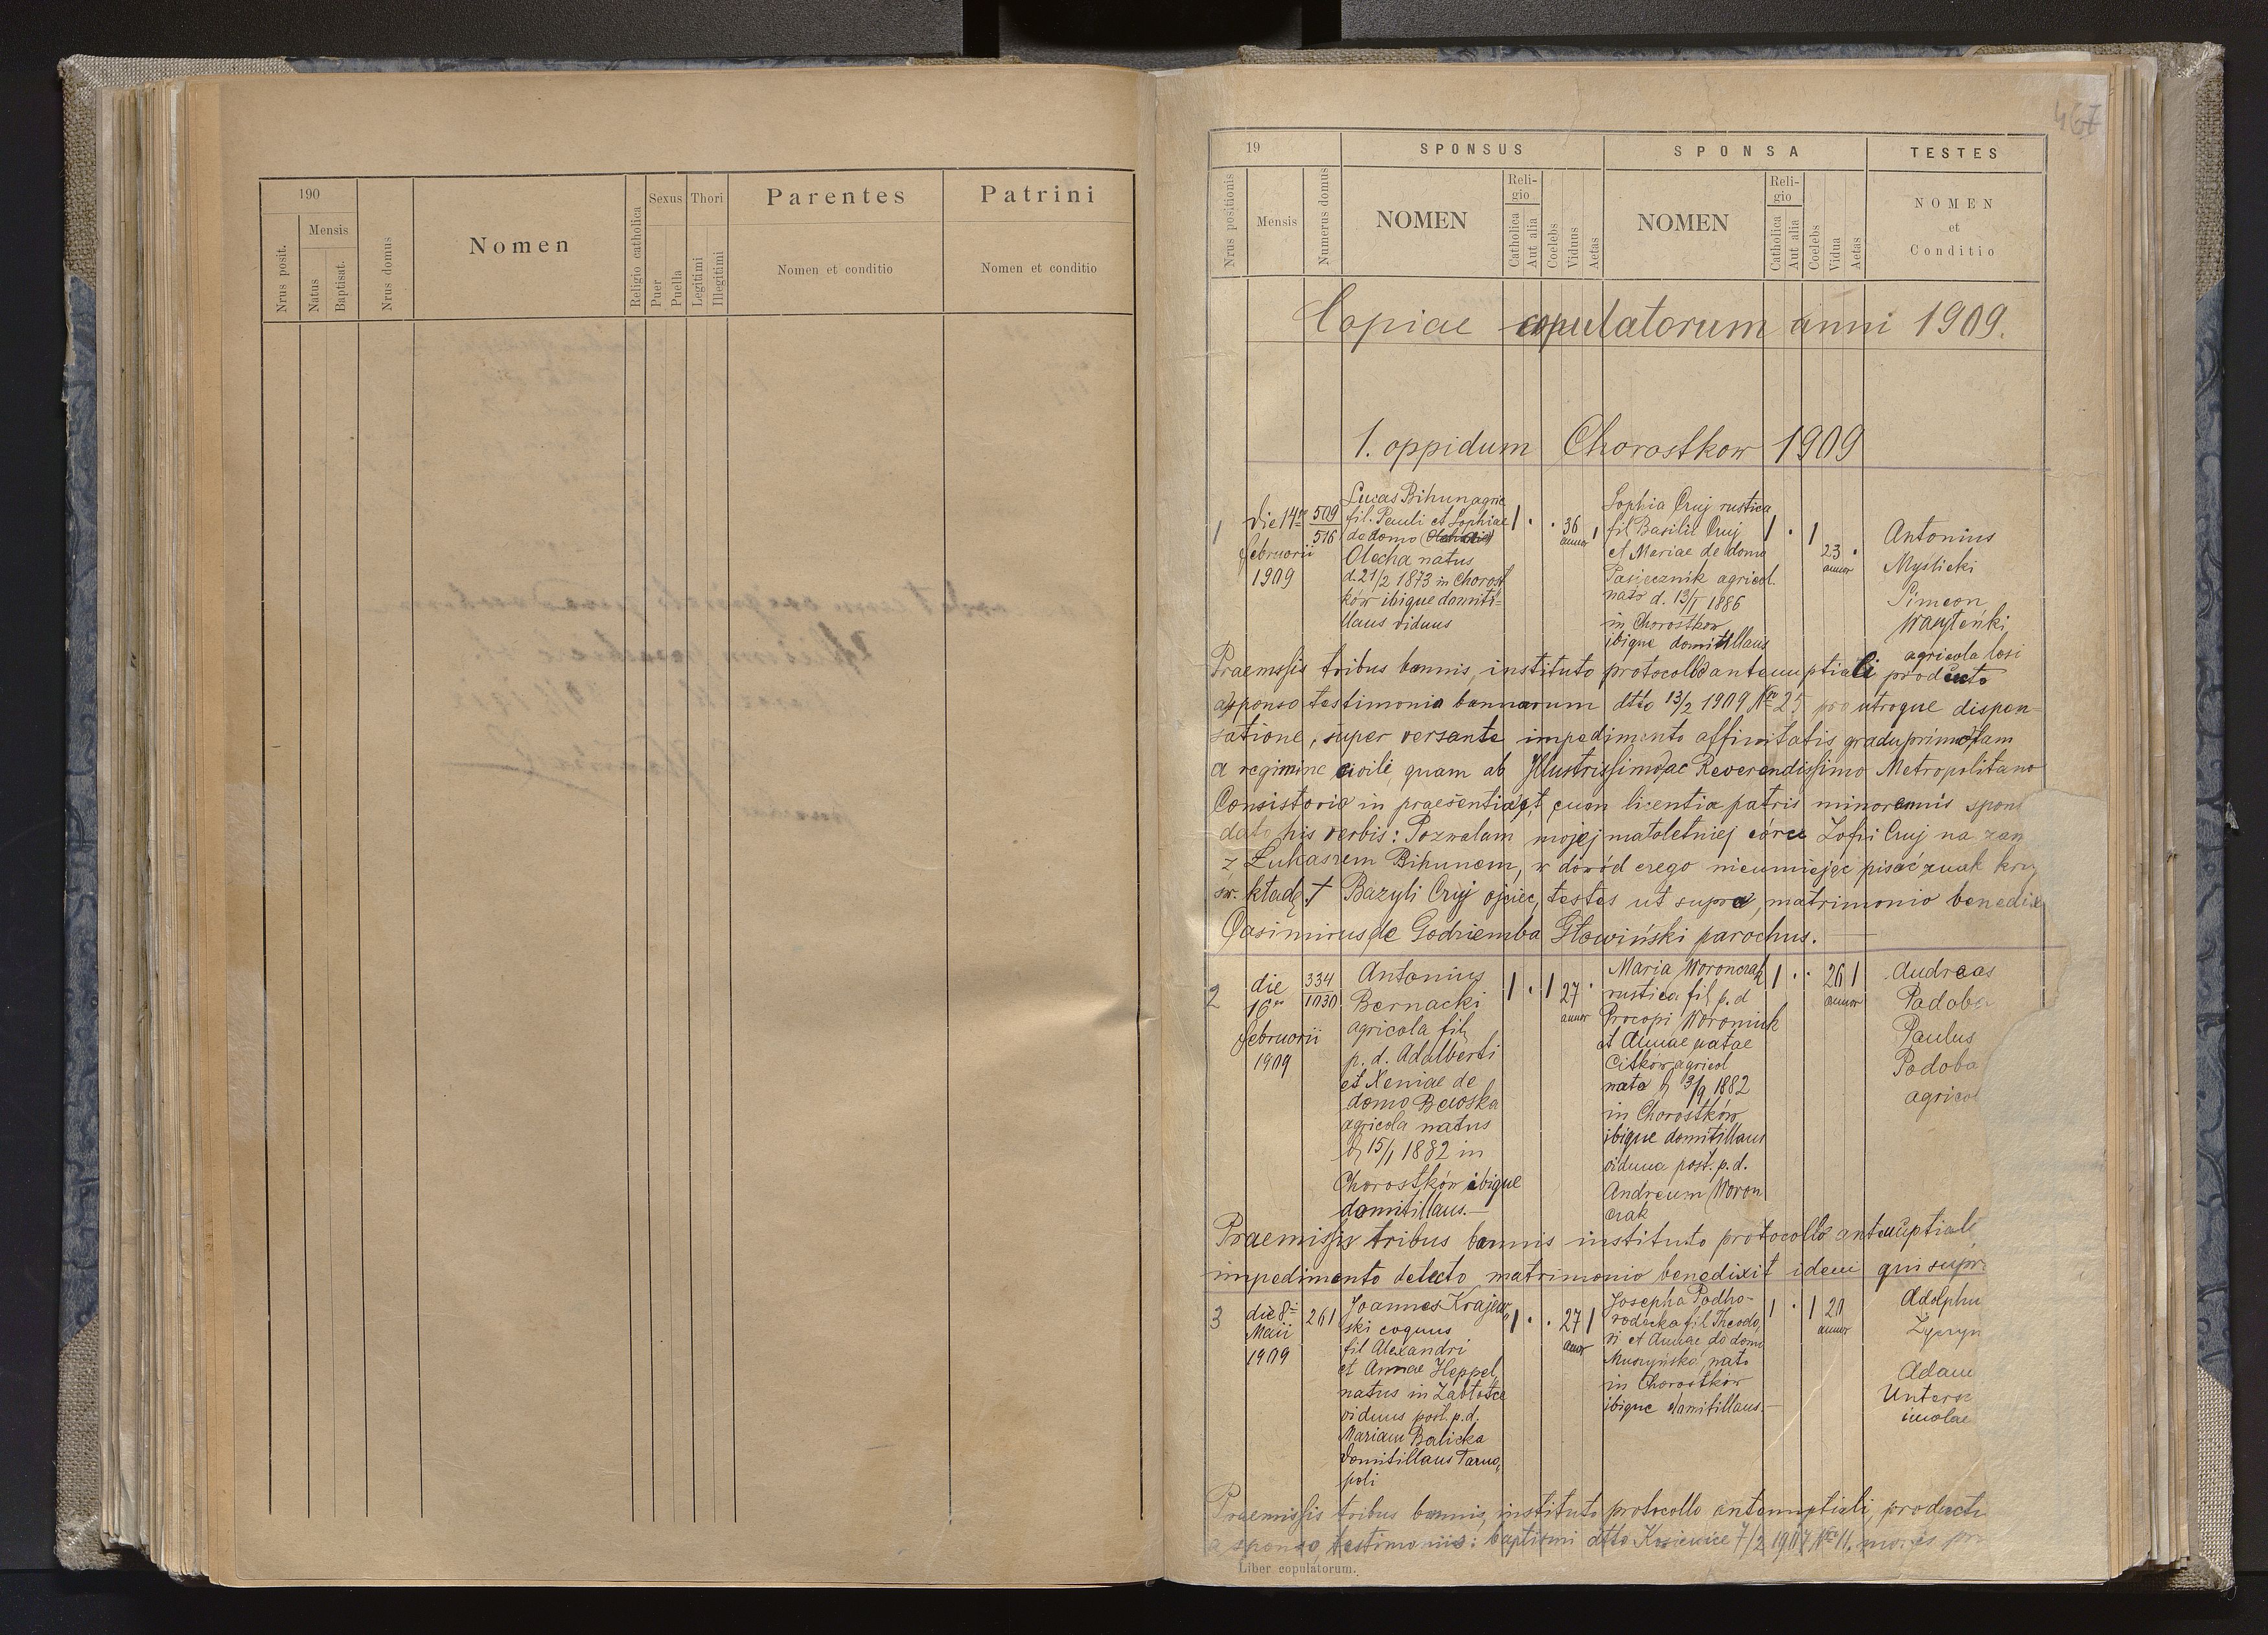 190
Nrus posit.
Mensis
Natus
Baptisat.
Nrus domus
Nomen
Religio catholica
Sexus
Puer
Puella
Thori
Legitimi
Illegitimi
Parentes
Nomen et conditio
Patrini
Nomen et conditio
467
19
SPONSUS
SPONSA
TESTES
Nrus positionis
Mensis
Numerus domus
NOMEN
Reli-
gio
Catholica
Aut alia
Coelebs
Viduus
Aetas
NOMEN
Reli-
gio
Catholica
Aut alia
Coelebs
Vidua
Aetas
NOMEN
et
Conditio
Copiae copulatorum anni 1909.
1. oppidum Chorostkow 1909
1
die 14
februarii
1909
509
516
Lucas Bihun agric
fil. Pauli et Sophiae
de domo
Olecha natus
d. 21/2 1873 in Chorost
ków ibique domiti=
llaus viduus
1 · · 36 1
annor
Sophia Cruj rustica
fil Basilii Cruj
et Mariae de domo
Pasiecznik agricol.
nata d. 13/1 1886
in Chorostkow
ibique domitillaus
1 · 1 23 ·
annor
Antonius
Myślicki
Simeon
agricola loci
Praemissis tribus bannis, instituto protocollo antenuptiali producto
a sponso testimonio bannorum dtto 13/2 1909 Nro 25 pro utroque dispen=
satione, super versante impedimento affinitatis gradu primo tam
a regimine civili, quam ab Illustrissimo ac Reverendissimo Metropolitano
Consistorio in praesentia et cum licentia patris minorennis spon
dato his verbis: Pozwalam mojej małoletniej córce Zofii Cruj na zam
z Łukaszem Bihunem, w dowód czego nieumiejąc pisać znak krzy
św. kładę + Bazyli Cruj ojciec, testes ut supra, matrimonio benedix
Casimirus de Godziemba Głowiński parochus.
2
die
16
februarii
1909
334
1030
Antonius
Bernacki
agricola fil
p. d. Adalberti
et Xeniae de
domo
agricola natus
d 15/1 1882 in
Chorostków ibique
domitillaus.—
1 · 1 27 ·
annor
Maria Woronczak
rustica fil p. d
Procopi Woroniuk
et Annae natae
Citków agricol
nata d 3/9 1882
in Chorostków
ibique domitillaus
vidua post. p. d.
Andreum Woron
czak
1 · · 26 1
annor
Andreas
Padoba
Paulus
Podoba
agricol
Praemissis tribus bannis instituto protocollo antenuptiali
impedimento detecto matrimonio benedixit idem qui supr
3
die 8
Maii
1909
261
Joannes Krajew
ski coquus
fil Alexandri
et Annae Heppel
natus in Zabłotce
viduus post. p. d.
Mariam Balicka
domitillaus Tarno
poli
1 · · 27 1
annor
Josepha Podho-
rodecka fil Theodo
ri et Annae de domo
Muszyńska, nata
in Chorostków
ibique domitillaus.—
1 · 1 20
annor
Adolphu
Adam
Unters
incolae
Praemissis tribus bannis, instituto protocollo antenuptiali, producti
a sponso, testimoniis: baptismi dtto 7/2 1907 Nro 11, mortis pr
Liber copulatorum.